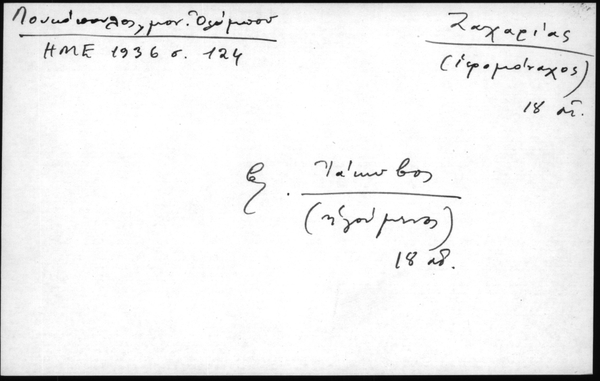 Λουκόπουλος, μον. Ὀλύμπου
ΗΜΕ 1936 σ. 124
Ζαχαρίας
(ἱερομόναχος)
18 αἰ.
Ἰάκωβος
(ἡγούμενος)
18 αἰ.